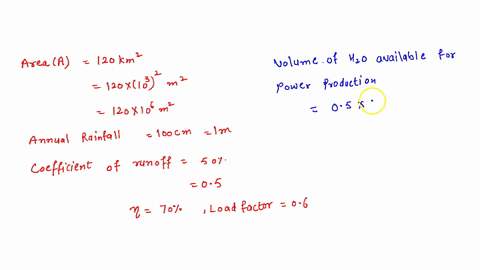 Area(A) = 120 km²
= 120×(10³)² m²
= 120×10⁶ m²
Annual Rainfall = 100cm = 1m
Coefficient of runoff = 50%
= 0.5
η = 70% , Load factor = 0.6
Volume of H₂O available for
Power Production
= 0.5 ×